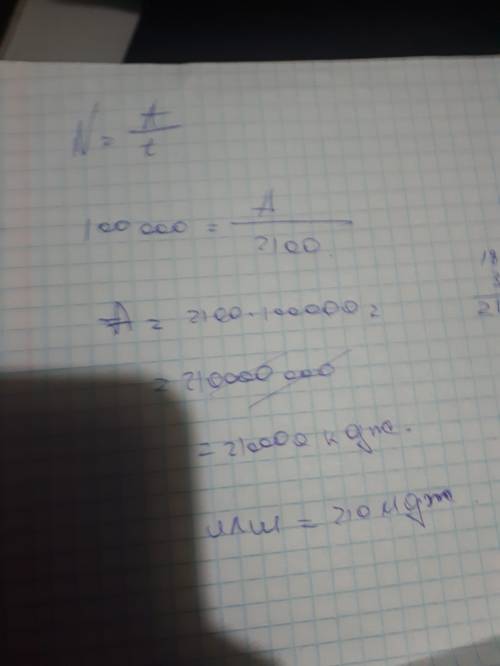 N = A/t
100 000 = A/2100
A = 2100 · 100000 =
= 210000 000
= 210000 кдж.
или = 210 мдж
18
21